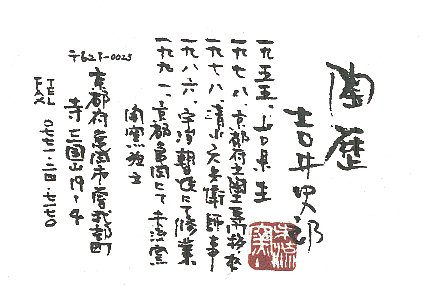 陶歴
吉井史郎
一九五五、山口県生
一九七八、京都府立陶工専修校
一九七八、清水六兵衛師事
一九八六、宇治朝日焼にて修業
一九九一、京都亀岡にて
開窯独立
〒621-0023
京都府亀岡市曽我部町
寺三国山19-4
TEL
FAX